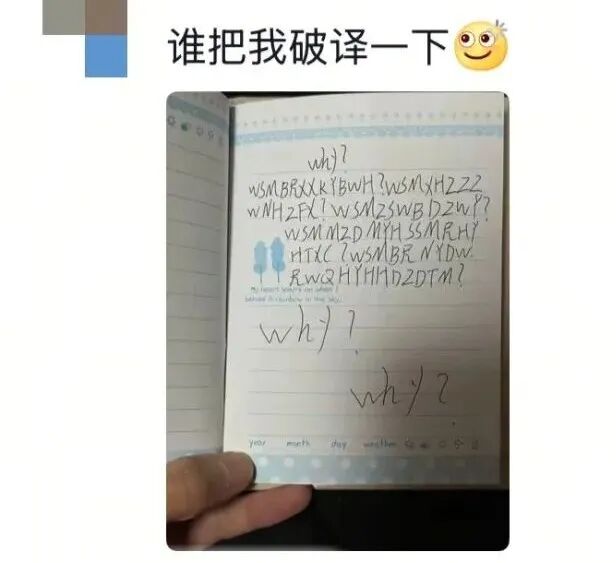 谁把我破译一下
why?
WSMBRXXKYBWH?WSMXHZZZ
WNHZFX?WSMZSWBDZWY?
WSMMZDMYHSSMRHY
HTXC?WSMBRNYDW
RWQHYHHDZDTM?
My heart leaps up when I
behold A rainbow in the sky.
why?
why?
year month day weather